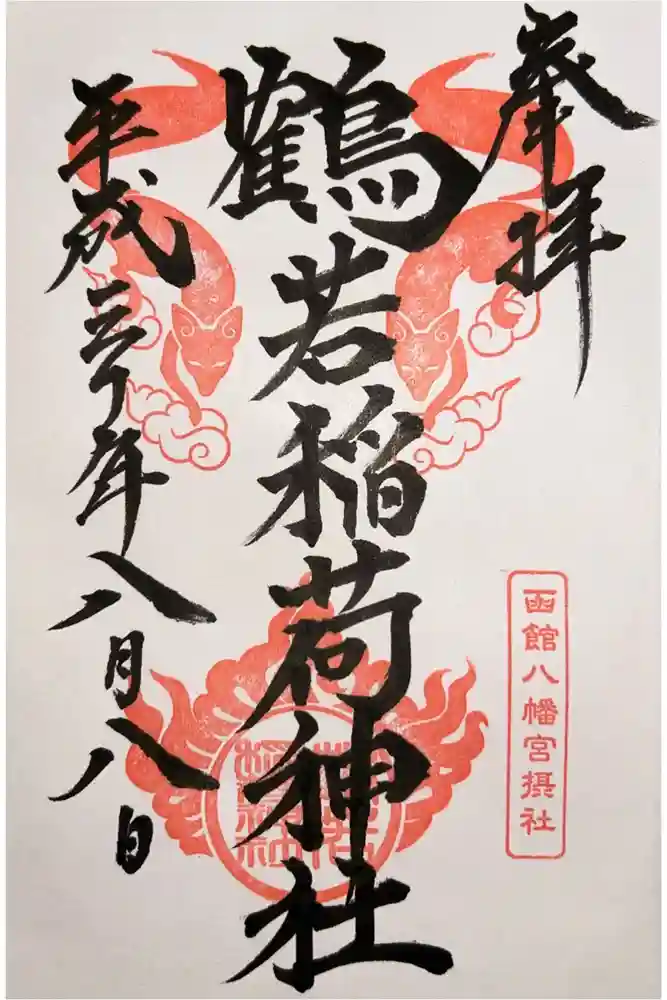 奉拝
函館八幡宮摂社
鶴若稲荷神社
平成三十年八月八日